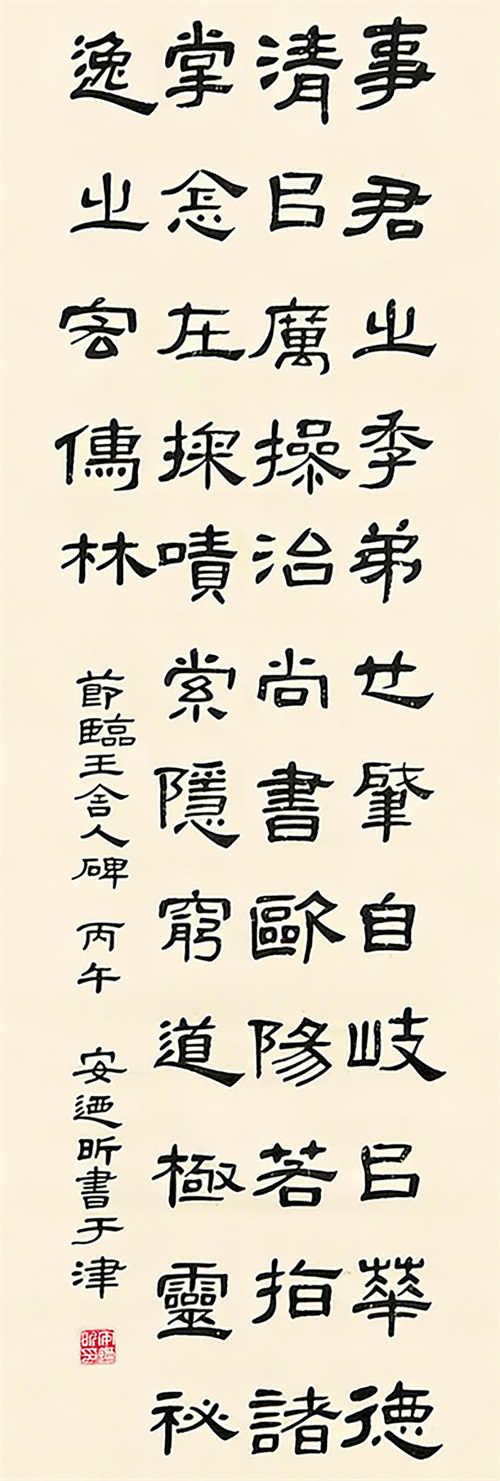 事君之季弟也肇自岐㠯華德
清㠯厲操治尚書歐陽若指諸
掌念在探嘖索隱窮道極靈祕
逸之客儁林
節臨王舍人碑 丙午 安迺昕書于津